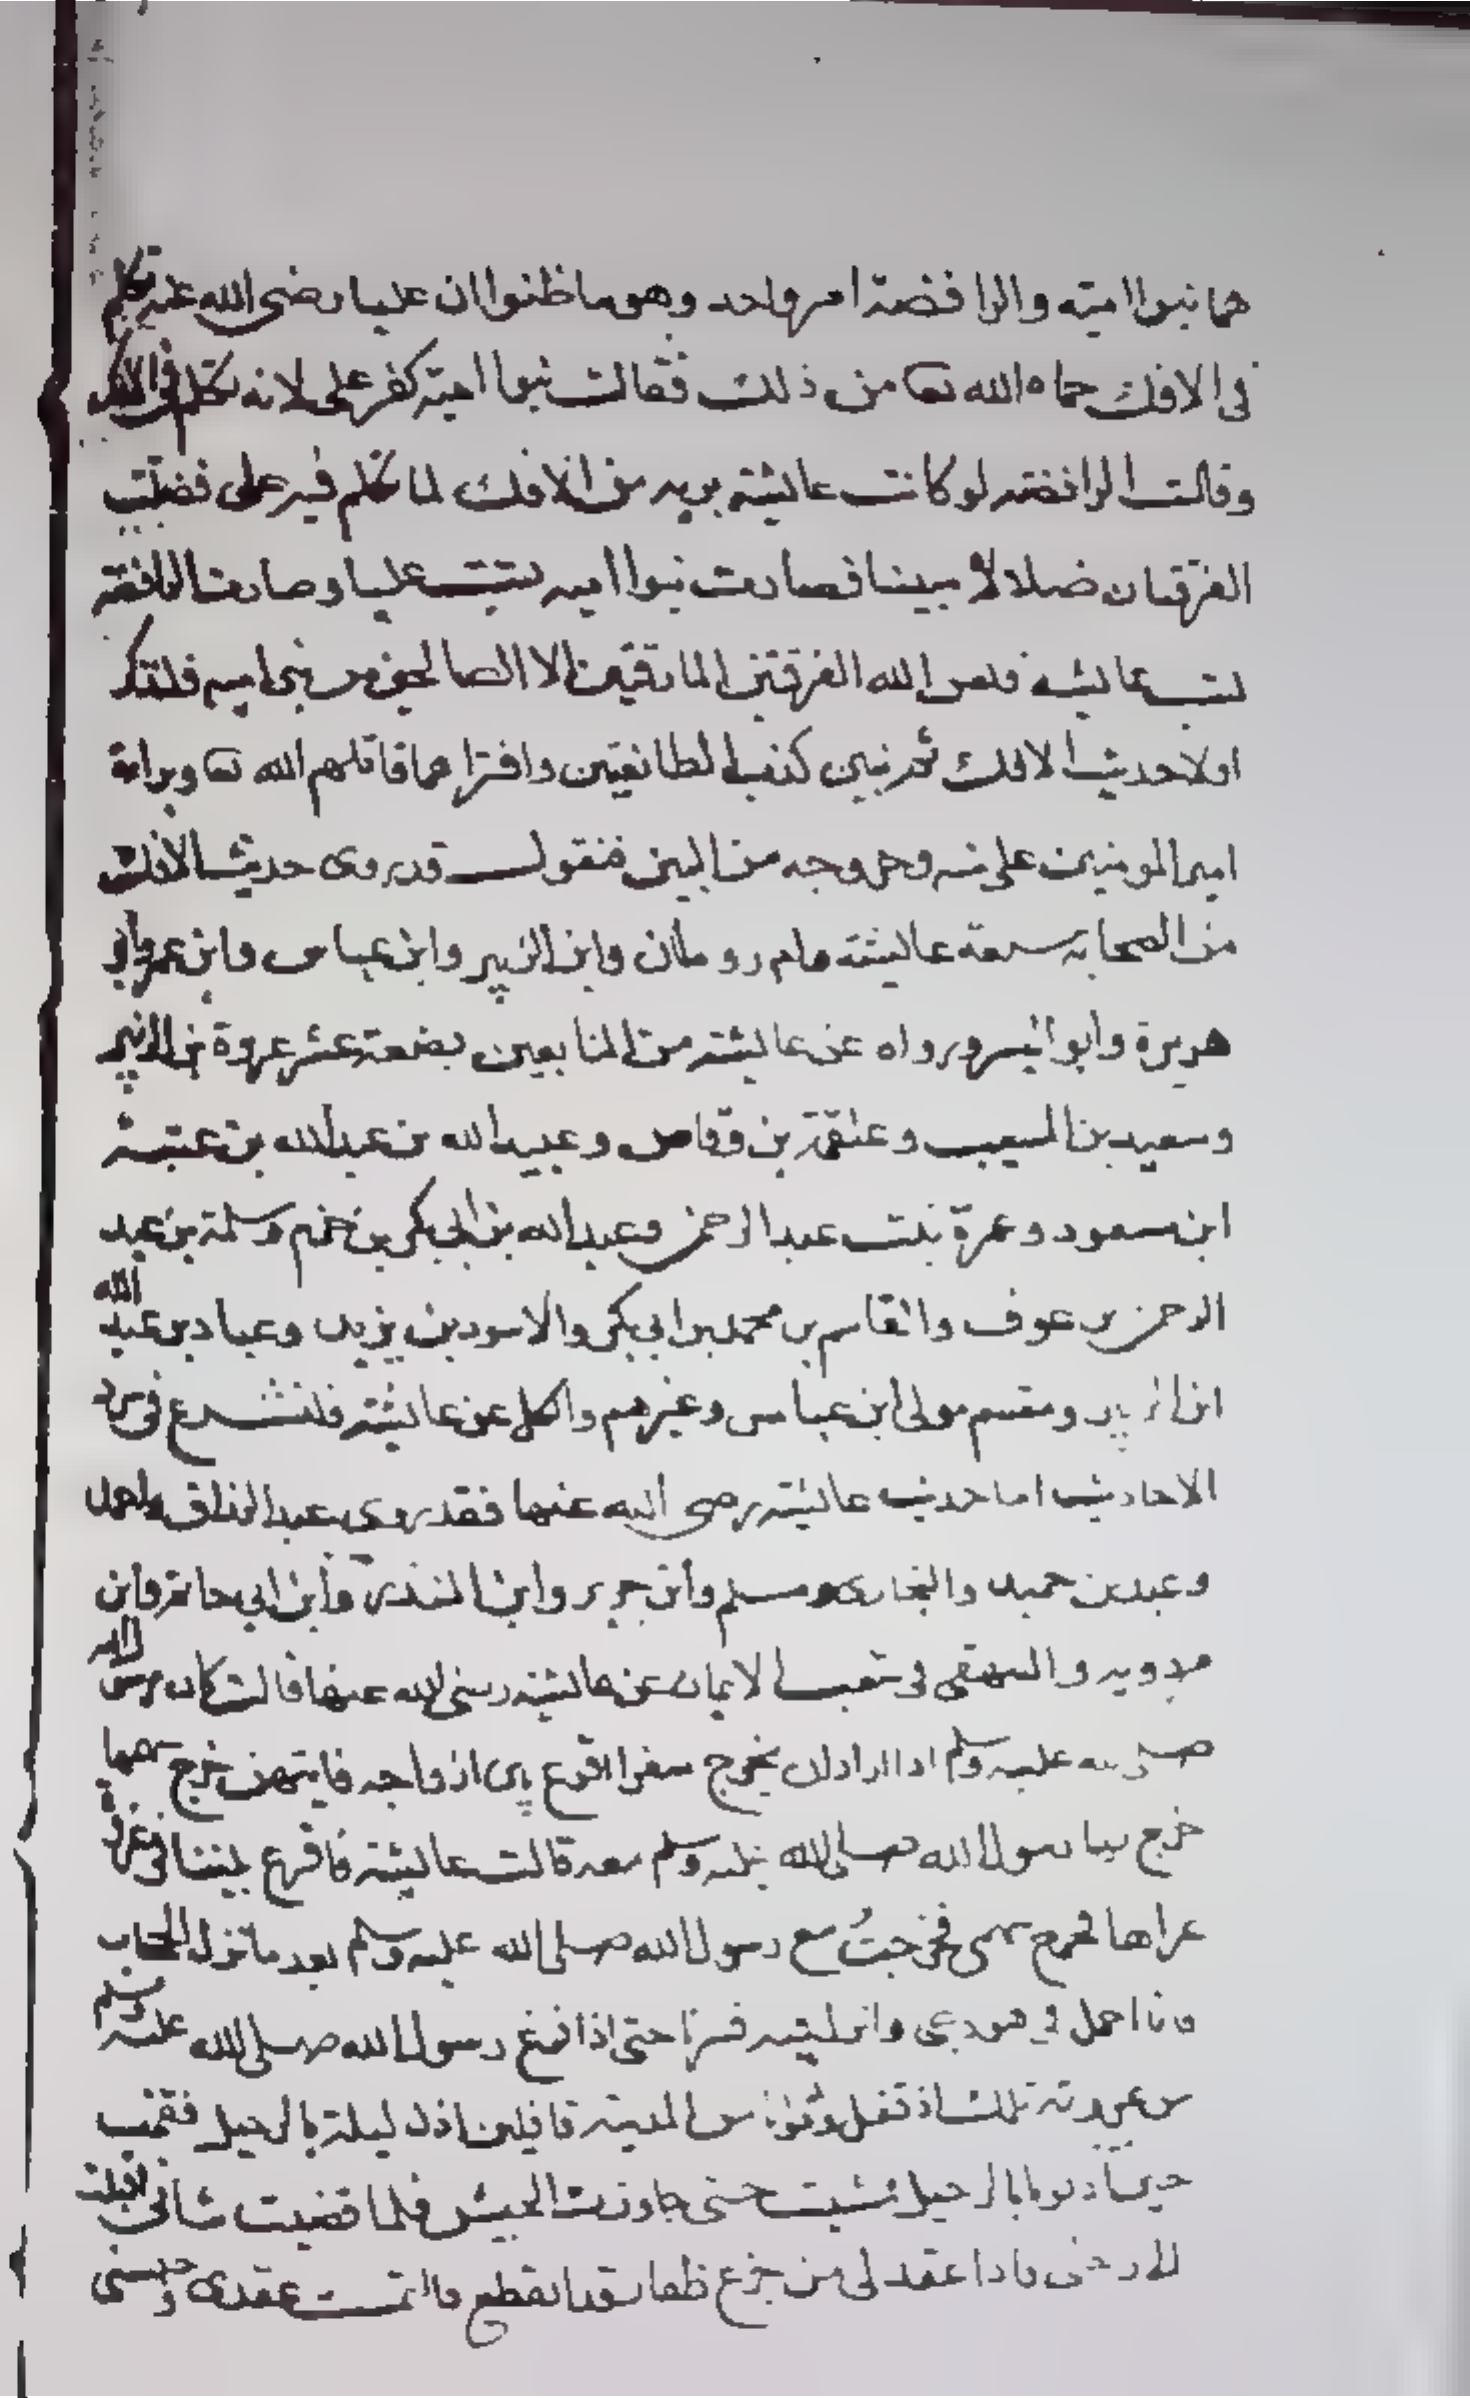 هما بنوا امية والرافضة امر واحد وهو ما ظنوا ان عليا رضي الله عنه تكلم
في الافك حماه الله تعا من ذلك فقالت بنوا امية كفر على لانه تكلم في الافك
وقالت الرافضة لو كانت عايشة بريه من الافك لما تكلم فيه على فضلت
الفرقتان ضلالا مبينا فصارت بنوا اميه تسب عليا وصارت الرافضة
تسب عايشه فلعن الله الفرقتين المارقتين الا الصالحين من بني اميه فلنذكر
اولا حديث الافك ثم نبين كذب الطائفتين وافترا هما قاتلهم الله تعا وبراءة
امير المومنين على منه وجه من البين فنقول قد روى حديث الافك
من الصحابه سبعة عايشة وام رومان وابن الزبير وابن عباس وابن عمر وابي
هريرة وابو اليسر ورواه عن عايشة من التابعين بضعة عشر عروة بن الزبير
وسعيد بن المسيب وعلقمة بن وقاص وعبيد الله بن عبد الله بن عتبة
ابن مسعود وعمرة بنت عبد الرحمن وعبد الله بن ابي بكر بن حزم وسلمة بن عبد
الرحمن بن عوف والقاسم بن محمد بن ابي بكر والاسود بن يزيد وعباد بن عبد الله
ابن الزبير ومقسم مولى ابن عباس وغيرهم والكل عن عايشة فلنشرع في سرد
الاحاديث اما حديث عايشة رضي الله عنها فقد روى عبد الرزاق واحمد
وعبد بن حميد والبخارى ومسلم وابن جرير وابن المنذر وابن ابي حاتم وابن
مردويه والبيهقى في شعب الايمان عن عايشة رضي الله عنها قالت كان رسول الله
صلى الله عليه وسلم اذا اراد ان يخرج سفرا اقرع بين ازواجه فايتهن خرج سهمها
خرج بها رسول الله صلى الله عليه وسلم معه قالت عايشة فاقرع بيننا في غزوة
غزاها فخرج سهمى فخرجتُ مع رسول الله صلى الله عليه وسلم بعد ما نزل الحجاب
وانا احمل في هودجى وانزل فيه فسرنا حتى اذا فرغ رسول الله صلى الله عليه وسلم
من غزوته تلك اذ قفل ودنونا من المدينة قافلين اذن ليلة بالرحيل فقمت
حين اذنوا بالرحيل فمشيت حتى جاوزت الجيش فلما قضيت شأنى اقبلت
الى رحلى فاذا عقد لى من جزع ظفار قد انقطع فالتمست عقدى وحبسنى